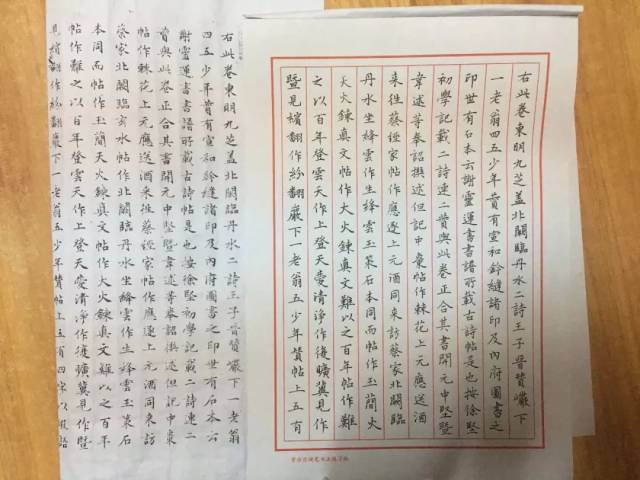 右此卷東明九芝蓋北闕臨丹水二詩王子晉贊巖下
一老翁四五少年贊有宣和鈐縫諸印及內府圖書之
印世有石本云謝靈運書書譜所載古詩帖是也按徐堅
初學記載二詩連二贊與此卷正合其書開元中堅暨
韋述等奉詔撰述但記中棗帖作棘花上元應送酒
來徃蔡經家帖作應逐上元酒同來訪蔡家北闕臨
丹水坐絳雲作生絳雲玉策石本同而帖作玉簡火
天火鍊真文帖作大火鍊真文難以之百年帖作難
之以百年登雲天作上登天愛清淨作復曠冀見作
暨見繽翻作紛翻巖下一老翁五少年贊帖上五有
右此卷東明九芝蓋北闕臨丹水二詩王子晉贊巖下一老翁
四五少年贊有宣和鈐縫諸印及內府圖書之印世有石本云
謝靈運書書譜所載古詩帖是也按徐堅初學記載二詩連二
贊與此卷正合其書開元中堅暨韋述等奉詔撰述但記中棗
帖作棘花上元應送酒來徃蔡經家帖作應逐上元酒同來訪
蔡家北闕臨亥水帖作北闕臨丹水坐絳雲作生絳雲玉策石
本同而帖作玉簡天火鍊真文帖作大火鍊真文難以之百年
帖作難之以百年登雲天作上登天愛清淨作復曠冀見作暨
見繽翻作紛翻巖下一老翁五少年贊帖上五有四字